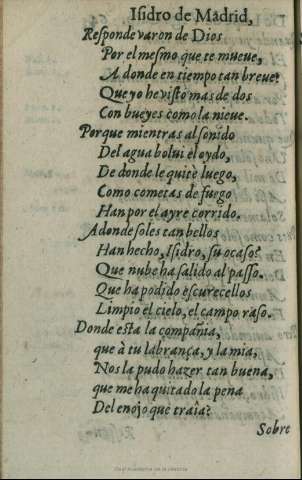 Isidro de Madrid,
Responde varon de Dios
Por el mesmo que te mueue,
A donde en tiempo tan breue?
Que yo he visto mas de dos
Con bueyes como la nieue.
Porque mientras al sonido
Del agua bolui el oydo,
De donde le quitè luego,
Como cometas de fuego
Han por el ayre corrido.
Adonde soles tan bellos
Han hecho, Isidro, su ocaso?
Que nube ha salido al passo.
Que ha podido escurecellos
Limpio el cielo, el campo raso.
Donde esta la compañia,
que à tu labrança, y la mia,
Nos la pudo hazer tan buena,
que me ha quitado la pena
Del enojo que traîa?
Sobre
Real Academia de la Historia